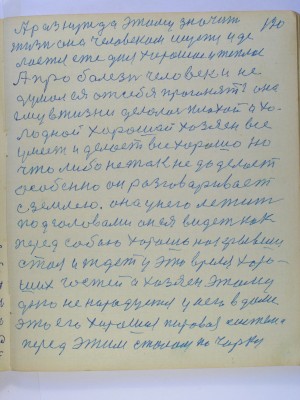 А разнужда этому значит 120
жизни она человеком ищется и де
лается ежедня хорошим и теплом
А про болезн человек и не
думался от себя прогнять? она
ему в жизни делалась плохой а хо-
лодной хороший хозяин все
умеет и делает все хорошо но
что либо не так не доделает
особенно он разговаривает
с землею. она у него лежит
под головами он ея видет как
перед собою хорошо накрывши
стол и ждет у это время хоро-
ших гостей а хозяен этому
дню не нарадуется у него в доме
это его хорошая пировая система
перед этим столом по чарку